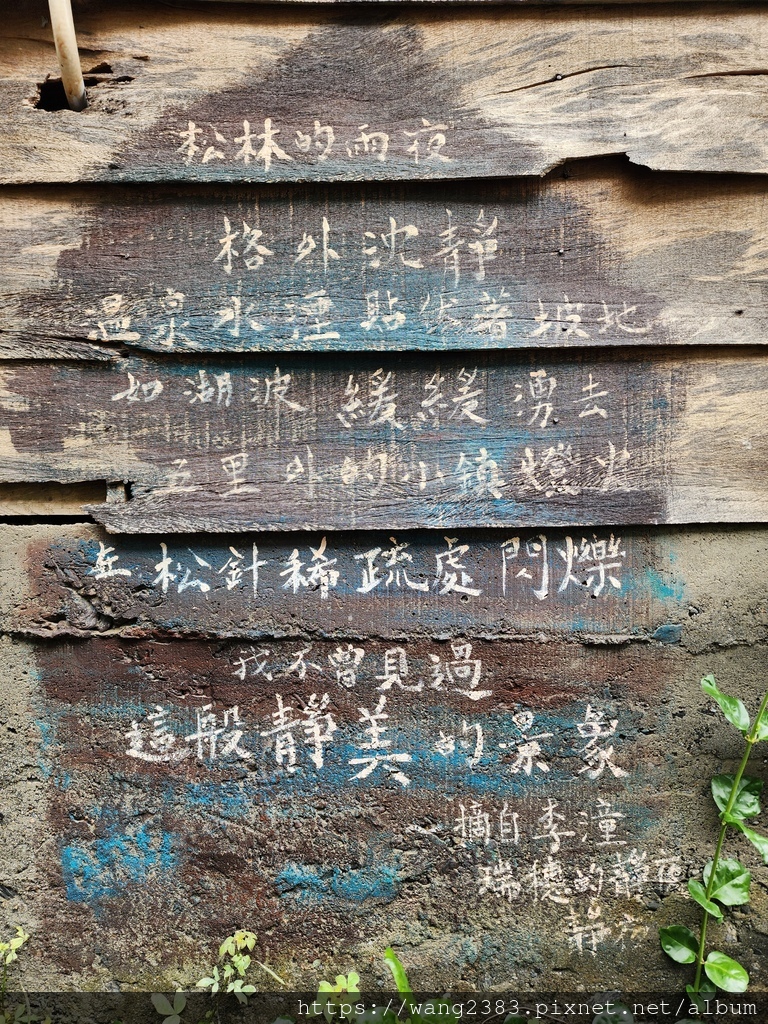 松林的雨夜
格外沈靜
溫泉水煙貼伏著坡地
如湖波 緩緩湧去
五里外的小鎮燈火
在松針稀疏處閃爍
我不曾見過
這般靜美的景象
摘自李潼
瑞穗的靜夜
靜宛
https://wang2383.pixnet.net/album